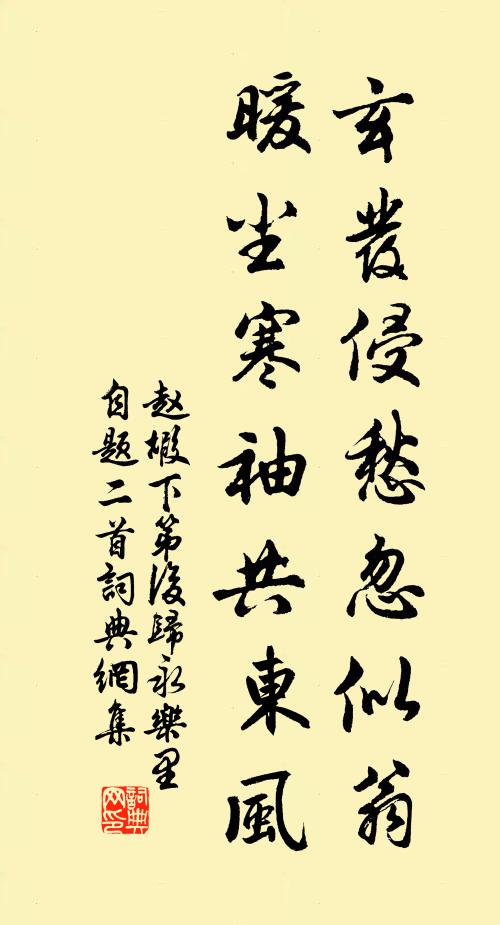 玄發侵愁忽似翁
暖尘寒袖共東風
赵嘏下第後歸永樂里
自題二首詞典網集
詞典网印